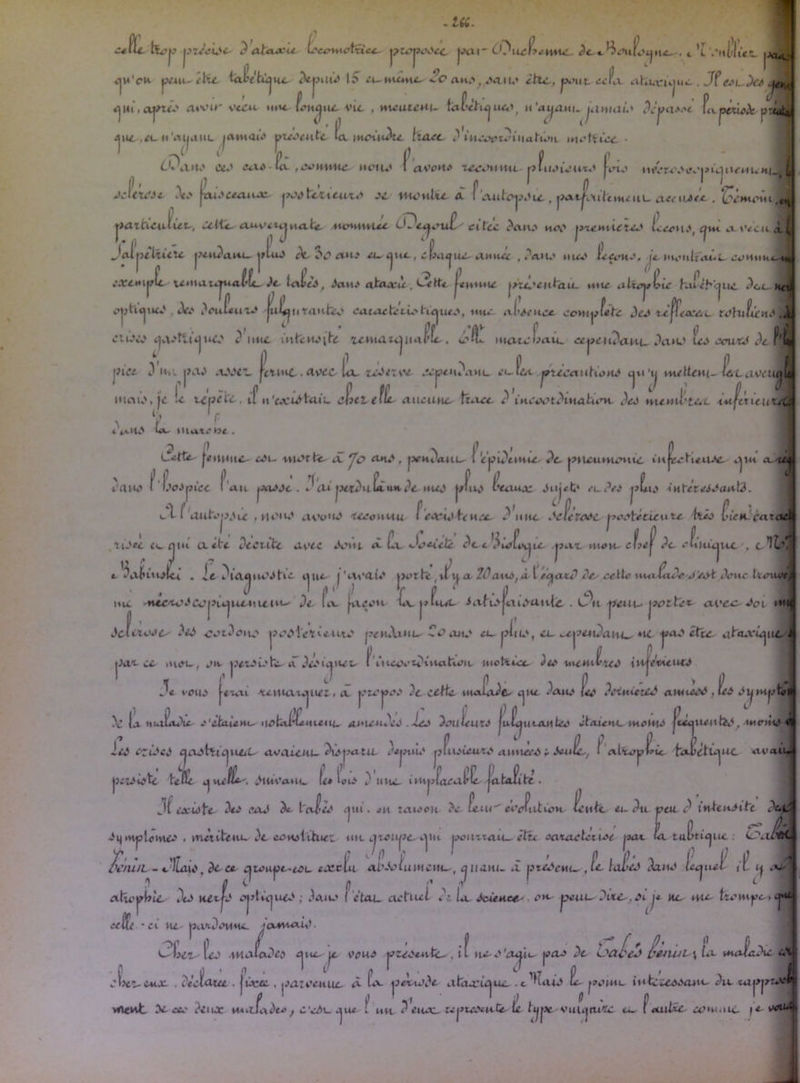 - 266. -
celle trop précise d'ataxie locomotrice proposée par Duchenne de Boulogne. N'oubliez pas
qu'on peut être tabétique depuis 15 et même 20 ans, sans être, pour cela ataxique. Il est des gens
qui, après avoir vécu une longue vie, meurent tabétiques, n'ayant jamais dépassé la période
que, et n'ayant jamais présenté la moindre trace d'incoordination motrice.
Dans ces cas-là, comme nous l'avons reconnu plusieurs fois nécroscopiquement, la
sclérose des faisceaux postérieurs se montre à l'autopsie, parfaitement accusée. Témoin, en
particulier, cette auvergnate nommée Degouf citée dans nos premières leçons, qui a vécu à la
Salpêtrière pendant plus de 30 ans et que, chaque année, dans mes leçons, je montrais comme un
exemple remarquable de tabès, sans ataxie. Cette femme présentait une atrophie tabétique des
optiques, des douleurs fulgurantes caractéristiques, une absence complète des réflexes rotuliens, des
crises gastriques d'une intensité remarquable. Elle marchait cependant dans les cours de
pice d'un pas assez ferme, avec la réserve cependant et les précautions qu'y mettent les aveugles
mais, je le répète, il n'existait chez elle aucune trace d'incoordination des membres inférieurs
dans la marche.
Cette femme est morte à 70 ans, pendant l'épidémie de pneumonie infectieuse qui a
dans l'hospice l'an passé. J'ai perdu là un de mes plus beaux sujets et des plus intéressants.
A l'autopsie, nous avons reconnu l'existence d'une sclérose postérieure très bien
risée et qui a été décrite avec soin à la Société de Biologie par mon chef de clinique,
Babinski. Le diagnostic que j'avais porté, il y a 20 ans, à l'égard de cette malade s'est donc trouvé
mé nécroscopiquement de la façon la plus satisfaisante. On peut porter avec soi une
sclérose des cordons postérieurs pendant 20 ans et plus, et cependant ne pas être ataxique
par ce mot, on persiste à désigner l'incoordination motrice des membres inférieurs
Je vous ferai remarquer, à propos de cette malade que dans les dernières années, les symptômes
de la maladie s'étaient notablement amendés. Les douleurs fulgurantes étaient moins fréquentes, moins
les crises gastriques avaient disparu depuis plusieurs années ; seule, l'atrophie tabétique avait
persisté telle quelle, suivant les lois d'une implacable fatalité.
Il existe des cas de tabès qui, en raison de leur évolution lente et du peu d'intensité des
symptômes, méritent de constituer un groupe qui pourrait être caractérisé par la rubrique : Tabès
bénin - Mais, de ce groupe est exclu absolument, quant à présent, le tabès dans lequel il y a
atrophie des nerfs optiques ; dans l'état actuel de la science, on peut dire, si je ne me trompe, que
celle-ci ne pardonne jamais.
Chez les malades que je vous présente, il ne s'agit pas de Tabès bénin ; la maladie est
chez eux, déclarée, fixée, parvenue à la période ataxique. Mais le point intéressant du rapproche
ment de ces deux malades, c'est que l'un d'eux représente le type vulgaire et l'autre comme je vous